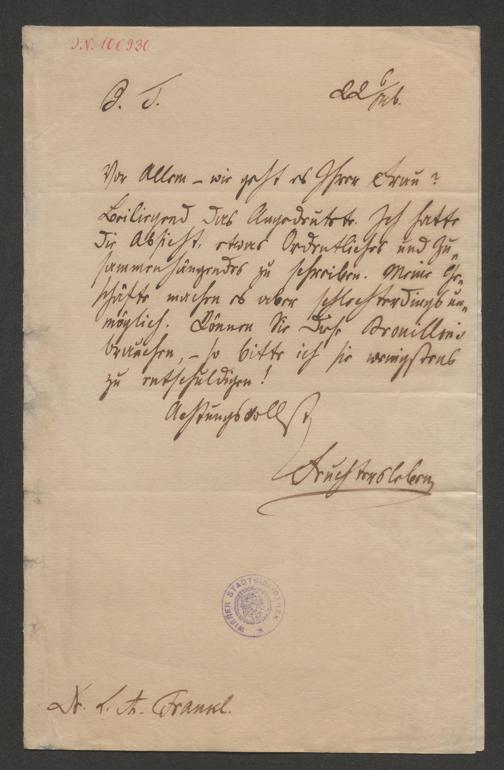 J.N. 100930
P. T.
22/6
Vor Allem – wie geht es Ihrer Frau?
Beiliegend das Angedeutete. Ich hatte
die Absicht, etwas Ordentliches und Zu-
sammenhängendes zu schreiben. Meine Ge-
schäfte machen es aber schlechterdings un-
möglich. Können Sie diese Brouillons
brauchen, – so bitte ich sie wenigstens
zu entschuldigen!
Achtungsvollst
Feuchtersleben
WIENER STADTBIBLIOTHEK
Dr. L. A. Frankl.